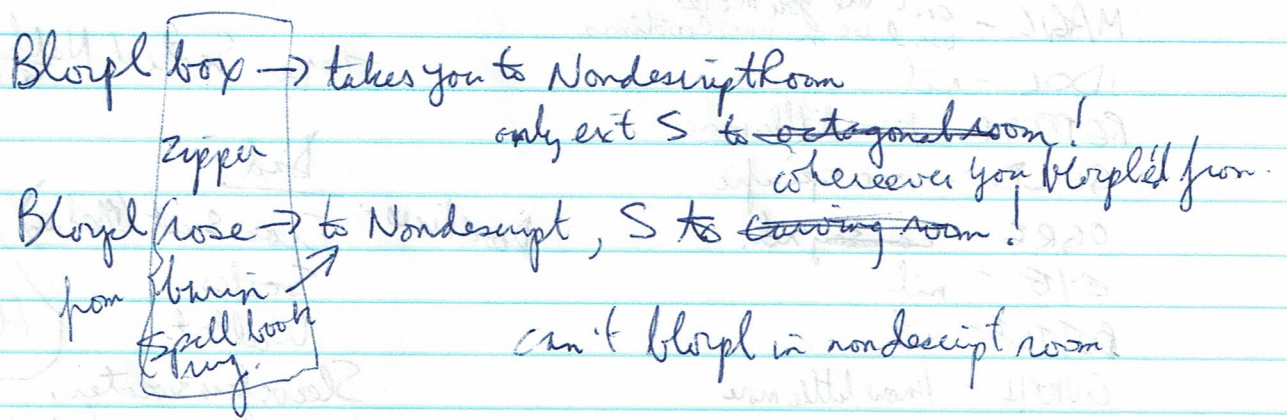 Blorpl box → takes you to Nondescript Room
only exit S to octagonal room!
zipper
whereever you blorpl'd from.
Blorpl hose → to Nondescript, S to carving room!
from burin
spell book
ring.
can't blorpl in nondescript room.